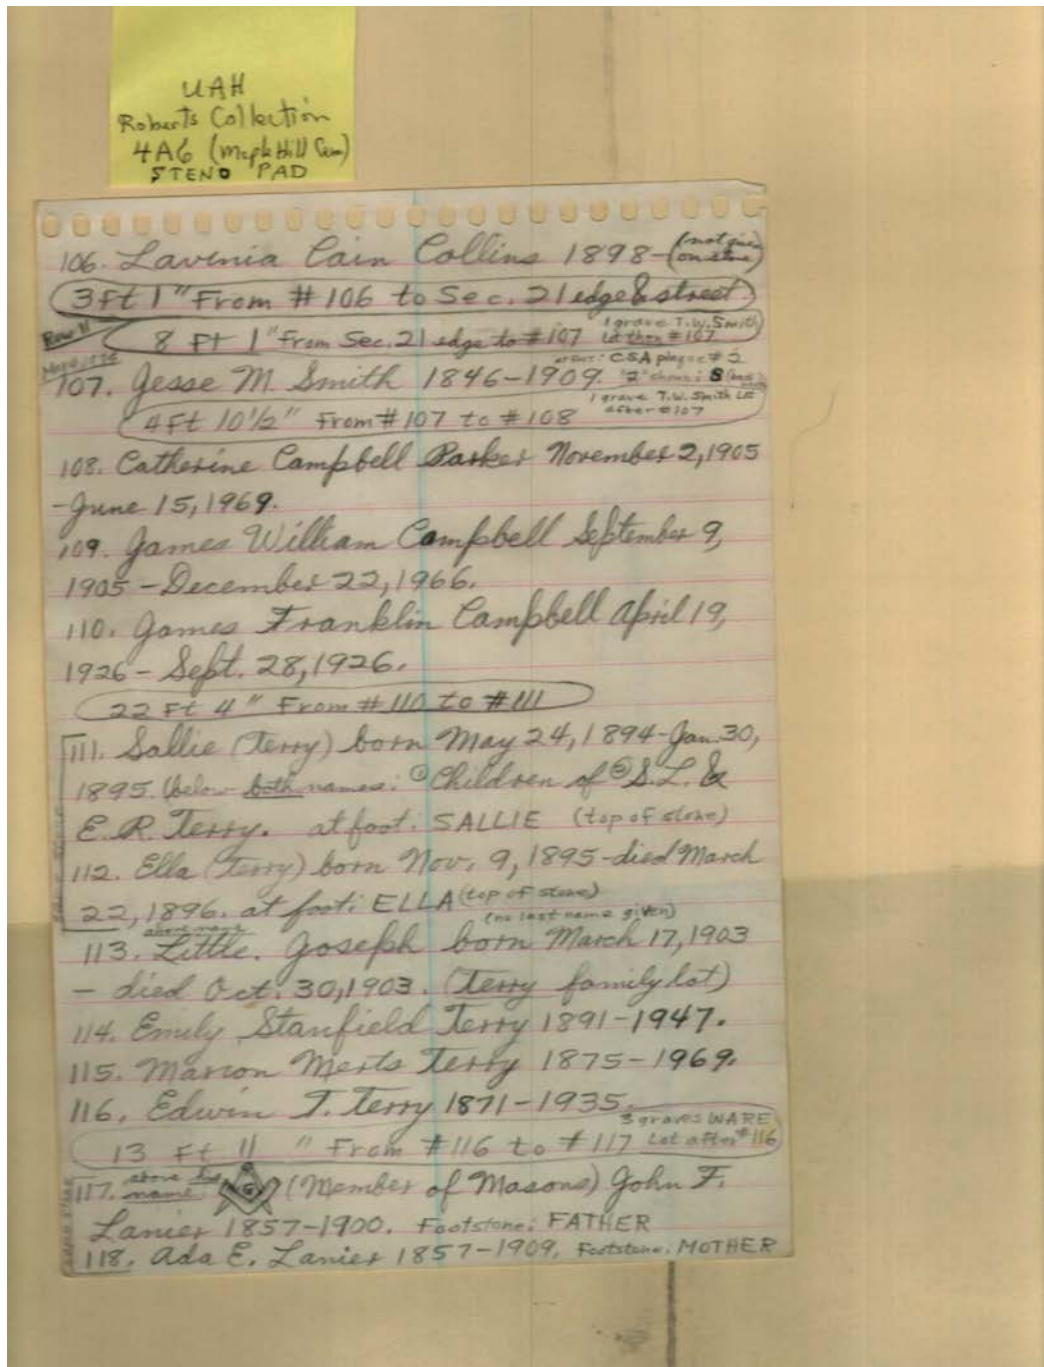 UAH
Roberts Collection
4A6 (Maple Hill Cem)
STENO PAD
106. Lavinia Cain Collins 1898-(not given on stone)
3ft 1" From #106 to Sec. 21 edge & street
Row 11
8 Ft 1" From Sec. 21 edge to #107 1 grave T.W. Smith Lot then #107
at foot: CSA plaque #2
107. Jesse M. Smith 1846-1909. "2" shows: 8
1 grave T.W. Smith Lot after #107
4Ft 10½" From #107 to #108
108. Catherine Campbell Parker November 2, 1905
-June 15, 1969.
109. James William Campbell September 9,
1905-December 22, 1966.
110. James Franklin Campbell April 19,
1926- Sept. 28, 1926.
22 Ft 4" From #110 to #111
111. Sallie (Terry) born May 24, 1894-Jan. 30,
1895. (below both names: ① Children of ② S.L. &
E.R. Terry. at foot: SALLIE (top of stone)
112. Ella (Terry) born Nov. 9, 1895-died March
22, 1896. at foot: ELLA (top of stone)
(no last name given)
113. Little. Joseph born March 17, 1903
- died Oct. 30, 1903. (Terry family lot)
114. Emily Stanfield Terry 1891-1947.
115. Marion Merts Terry 1875-1969.
116. Edwin T. Terry 1871-1935.
3 graves WARE
13 Ft 11 " From #116 to #117 Lot after #116
117. above his name: G (Member of Masons) John F.
Lanier 1857-1900. Footstone: FATHER
118. Ada E. Lanier 1857-1909. Footstone: MOTHER